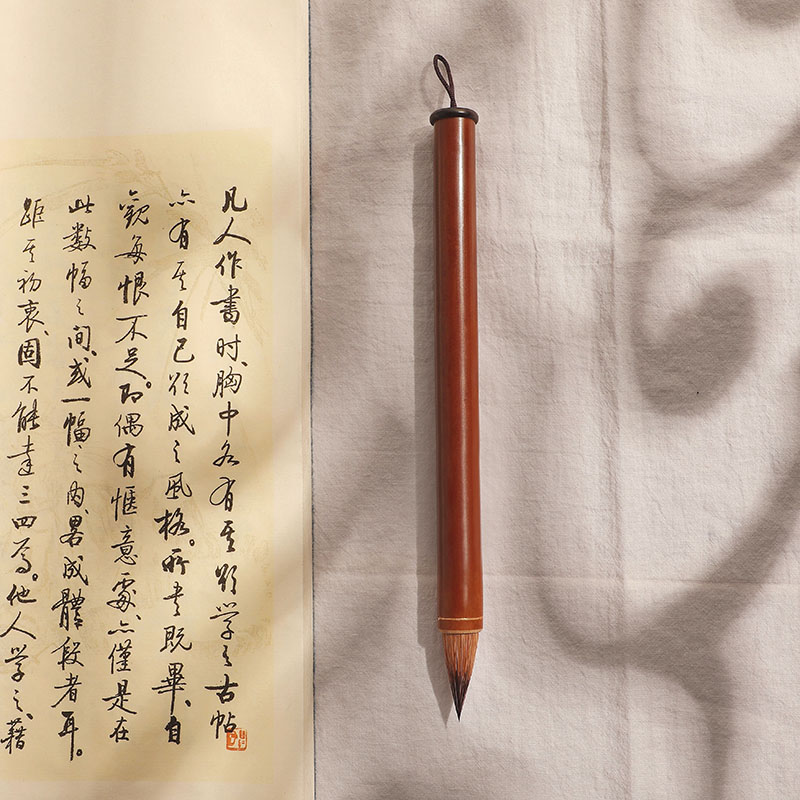 凡人作書时、胸中各有其欲学之古帖
亦有其自己欲成之風格。所书既畢、自
觀每恨不足。即偶有惬意處、亦僅是在
此数幅之间、或一幅之内、畧成體段者耳。
距其初衷、固不能達三四焉。他人学之、藉